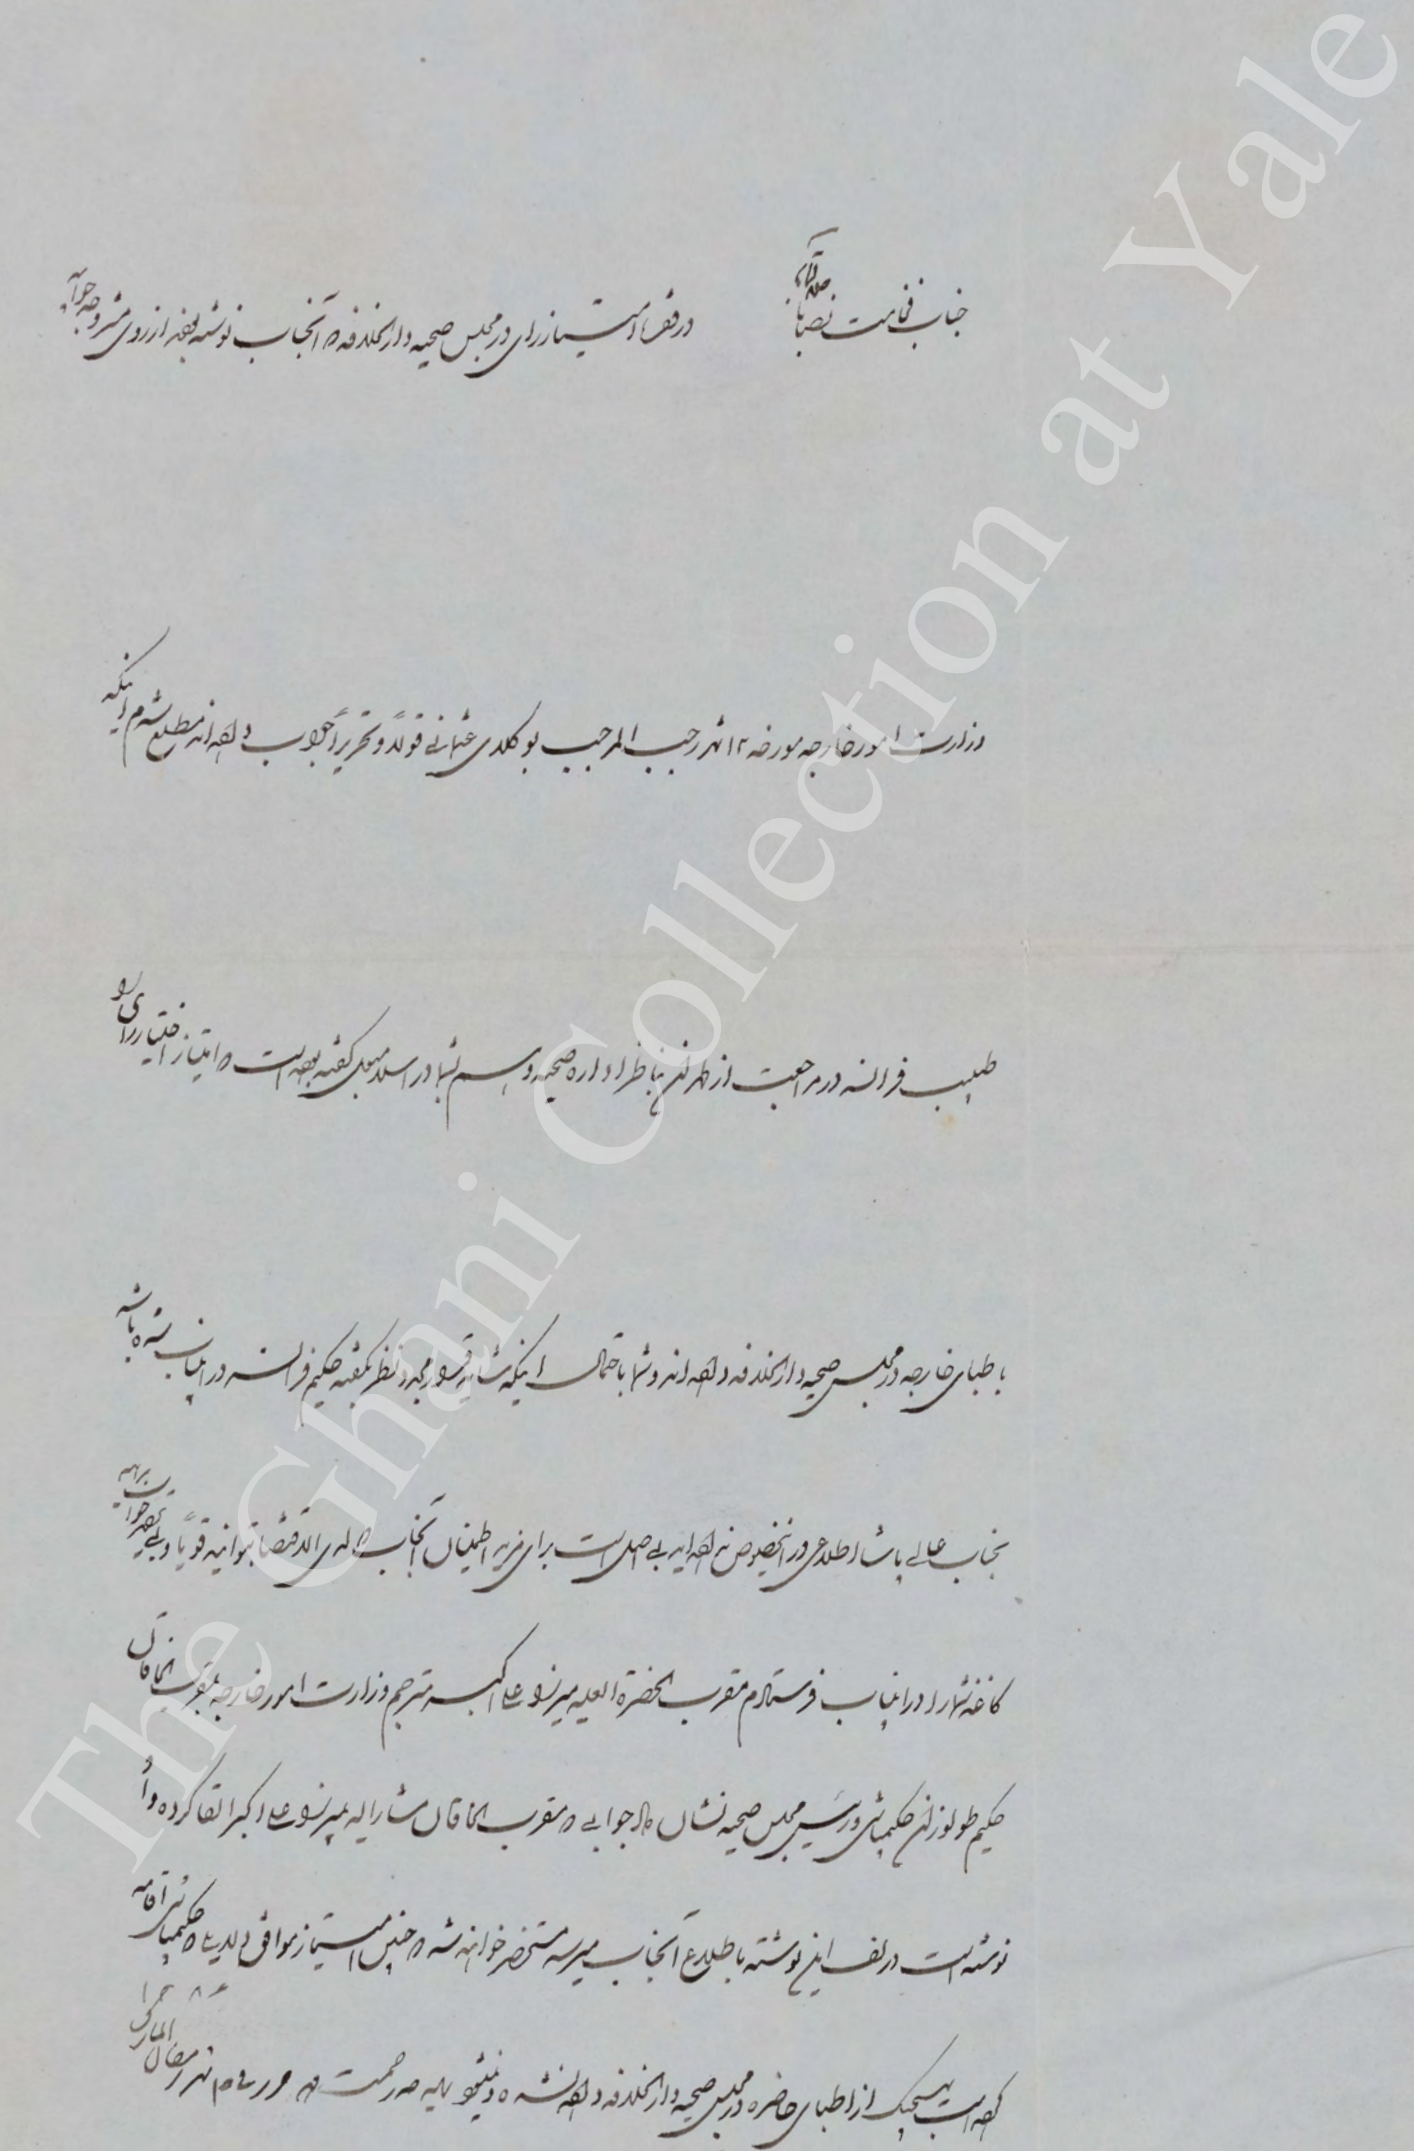 جناب فخامت نصابا
در فقره امتیاز رای در مجلس صحیه دار الخلافه که آنجناب نوشته بودند از روی مشروحه جوابیه
وزارت امور خارجه مورخه ۱۲ شهر رجب المرجب بوکلای عثمانی قولاً و تحریراً جواب داده‌اند مطلع شدم و اینکه
طبیب فرانسه در مراجعت از طهران بناظر اداره صحیه و باسم شما در اسلامبول گفته بوده است که امتیاز اختیار رای را
باطبای خارجه در مجلس صحیه دار الخلافه داده‌اند و شما باحتمال اینکه شاید مجدد نظر بگفته حکیم فرانسه در اینباب شده باشد
بجناب عالی پاشا اطلاعی در اینخصوص نداده‌اید بی اصل است برای مزید اطمینان آنجناب که لدی الاقتضا بتوانید قویاً
کاغذ شما را در اینباب فرستادم مقرب الحضرة العلیه میرزا علی اکبر مترجم وزارت امور خارجه بمقرب الخاقان
حکیم طولوزان حکیمباشی و رئیس مجلس صحیه نشان داد جوابی که مقرب الخاقان مشارالیه بمیرزا علی اکبر القا کرده و او
نوشته است در لف این نوشته باطلاع آنجناب میرسد مستحضر خواهند شد که چنین امتیاز موافق دلایلی که حکیمباشی اقامه
کرده است بهیچیک از اطبای خارجه در مجلس صحیه دار الخلافه داده نشده و نمیشود شهر رمضان المبارک
The Ghani Collection at Yale